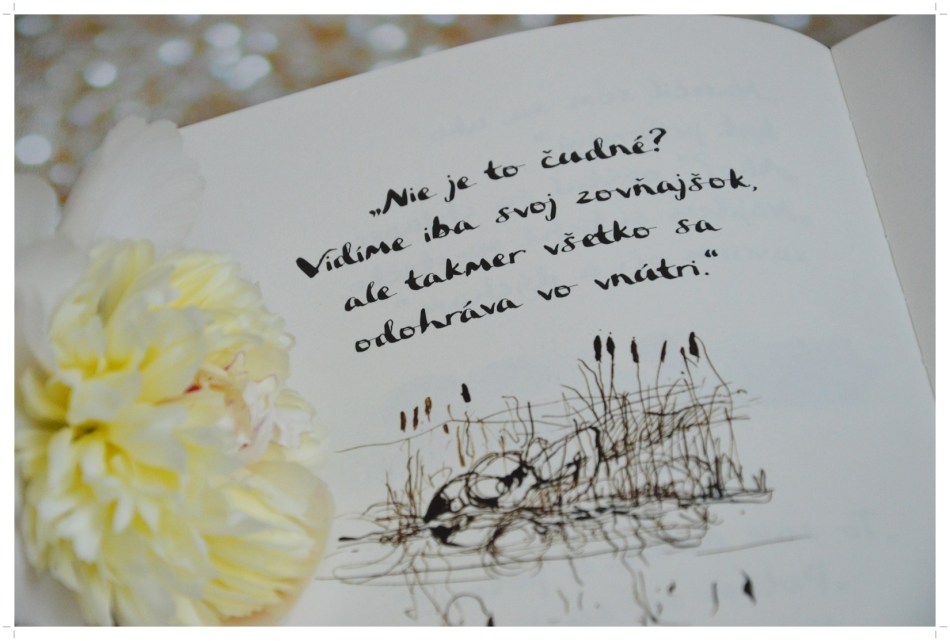 „Nie je to čudné?
Vidíme iba svoj zovňajšok,
ale takmer všetko sa
odohráva vo vnútri.“